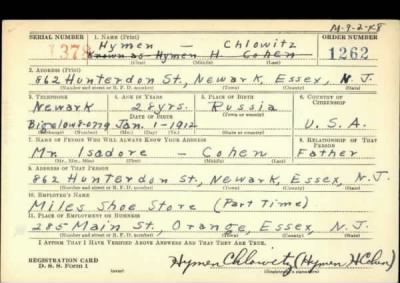 M-9-2-48
SERIAL NUMBER 1. NAME (Print) ORDER NUMBER
1378 Hymen — Chlowitz 1262
Known as Hymen H Cohen
(First) (Middle) (Last)
2. ADDRESS (Print)
862 Hunterdon St., Newark, Essex, N.J.
(Number and street or R. F. D. number) (Town) (County) (State)
3. TELEPHONE 4. AGE IN YEARS 5. PLACE OF BIRTH 6. COUNTRY OF CITIZENSHIP
Newark 28 yrs. Russia
DATE OF BIRTH
Bigelow 8-0779 Jan. 1-1912 U.S.A.
(Exchange) (Number) (Mo.) (Day) (Yr.) (State or country)
7. NAME OF PERSON WHO WILL ALWAYS KNOW YOUR ADDRESS 8. RELATIONSHIP OF THAT PERSON
Mr. Isadore — Cohen Father
(Mr., Mrs., Miss) (First) (Middle) (Last)
9. ADDRESS OF THAT PERSON
862 Hunterdon St., Newark, Essex, N.J.
(Number and street or R. F. D. number) (Town) (County) (State)
10. EMPLOYER'S NAME
Miles Shoe Store (Part Time)
11. PLACE OF EMPLOYMENT OR BUSINESS
285 Main St., Orange, Essex, N.J.
(Number and street or R. F. D. number) (Town) (County) (State)
I AFFIRM THAT I HAVE VERIFIED ABOVE ANSWERS AND THAT THEY ARE TRUE.
REGISTRATION CARD
D. S. S. Form 1 (over) Hymen Chlowitz (Hymen H Cohen)
(Registrant's signature)